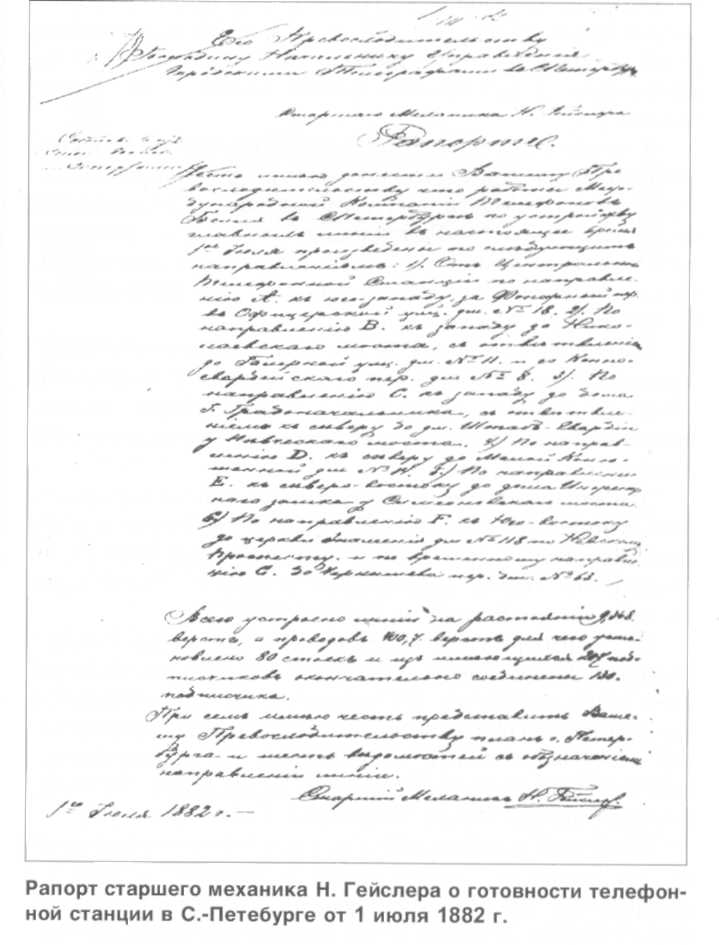 Его Превосходительству
Господину Начальнику Управления
Городскими Телеграфами в С. Петербур
Старшаго Механика Н. Гейслера
Рапортъ.
Честь имею донести Вашему Пре
восходительству что работы Меж
дународной Компании Телефоновъ
Белля въ С. Петербурге по устройству
главныхъ линій въ настоящее время
1го Іюля произведены по следующимъ
направленіямъ: 1). Отъ Центральной
Телефонной Станціи по направле-
нію А. къ юго-западу за Фонарный пр.
въ Офицерской улиц. дм. № 18. 2). По
направленію В. къ западу до Нико-
лаевскаго моста, съ ответвленіемъ
до Галерной улиц. дм. № 11. и до Конно-
гвардейскаго пер. дм. № 8. 3). По
направленію С. къ западу до дома
Г. Градоначальника, съ ответвле-
ніемъ къ северу до дм. Штаба Гвардіи
у Певческаго моста. 4) По направ-
ленію D. къ северу до Малой Коню-
шенной дм № 14. 5.) По направленію
Е. къ северо-востоку до дома Инженер
наго замка у Симеоновскаго моста.
6) По направленію F. къ Юго-Востоку
до церкви Знаменія дм № 118 по Невскому
Проспекту. и по временному направле
нію С. до Чернышева пер. дм. № 63.
Всего устроено линій на растояніи
верста, а проводовъ 100,7 верстъ для чего уста-
новлено 80 стоекъ и изъ имеющихся 207 под-
писчиковъ окончательно соединены 130.
подписчика.
При семъ имею честь представить Ваше-
му Превосходительству планъ г. Петер-
бурга и шесть ведомостей съ обозначеніемъ
направленія линіи.
Старшій Механикъ Н. Гейслеръ.
1го Іюля 1882 г. —
Рапорт старшего механика Н. Гейслера о готовности телефон-
ной станции в С.-Петебурге от 1 июля 1882 г.